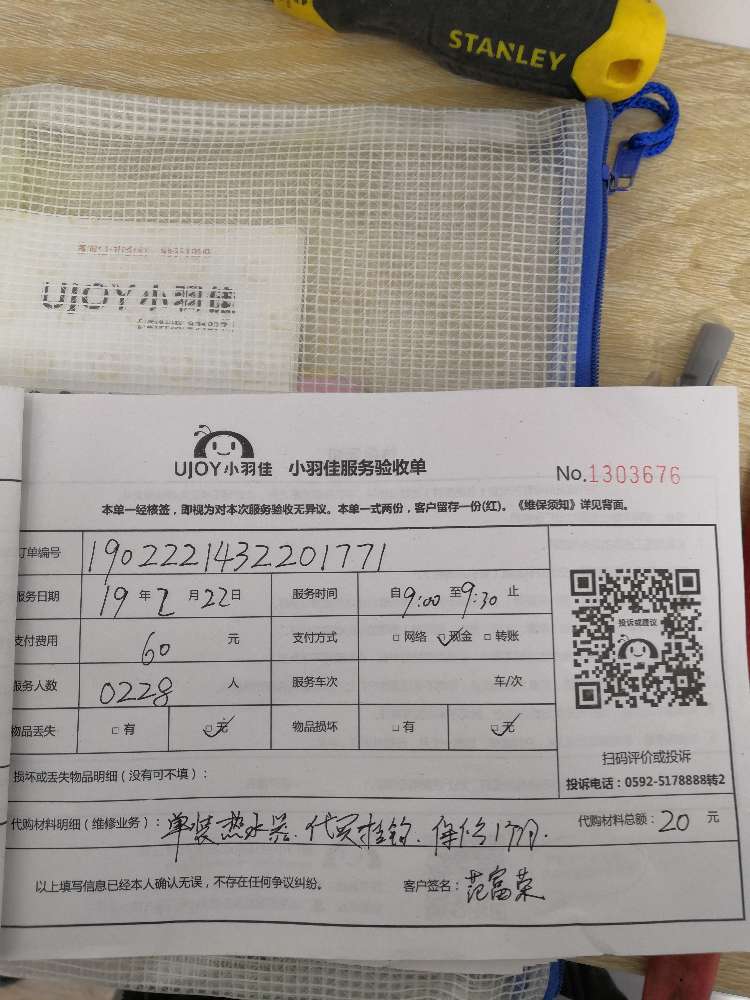 STANLEY
UJOY小羽佳
UJOY小羽佳 小羽佳服务验收单 No.1303676
本单一经核签，即视为对本次服务验收无异议。本单一式两份，客户留存一份(红)。《维保须知》详见背面。
订单编号 1902221432201771
服务日期 19年2月22日 服务时间 自9:00至9:30止
支付费用 60 元 支付方式 □网络 ☑现金 □转账
服务人数 0228 人 服务车次 车/次
物品丢失 □有 ☑无 物品损坏 □有 ☑无
投诉或建议
扫码评价或投诉
投诉电话：0592-5178888转2
损坏或丢失物品明细（没有可不填）：
代购材料明细（维修业务）：单装热水器.代买挂钩.保修1个月. 代购材料总额：20 元
以上填写信息已经本人确认无误，不存在任何争议纠纷。 客户签名：范富荣